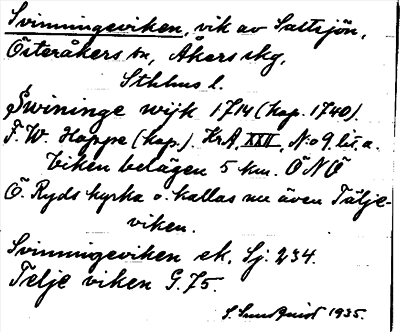 Svinningeviken, vik av Saltsjön,
Österåkers sn, Åkers skg,
Sthlms l.
Swininge wijk 1714 (kop. 1740).
F. W. Hoppe (kop.). KrA XXII, No 9 lit. a.
Viken belägen 5 km. ÖNÖ
Ö. Ryds kyrka o. kallas nu även Tälje-
viken.
Svinningeviken ek. Sj. 234.
Telje viken G. 75.
S. Sundquist 1935.